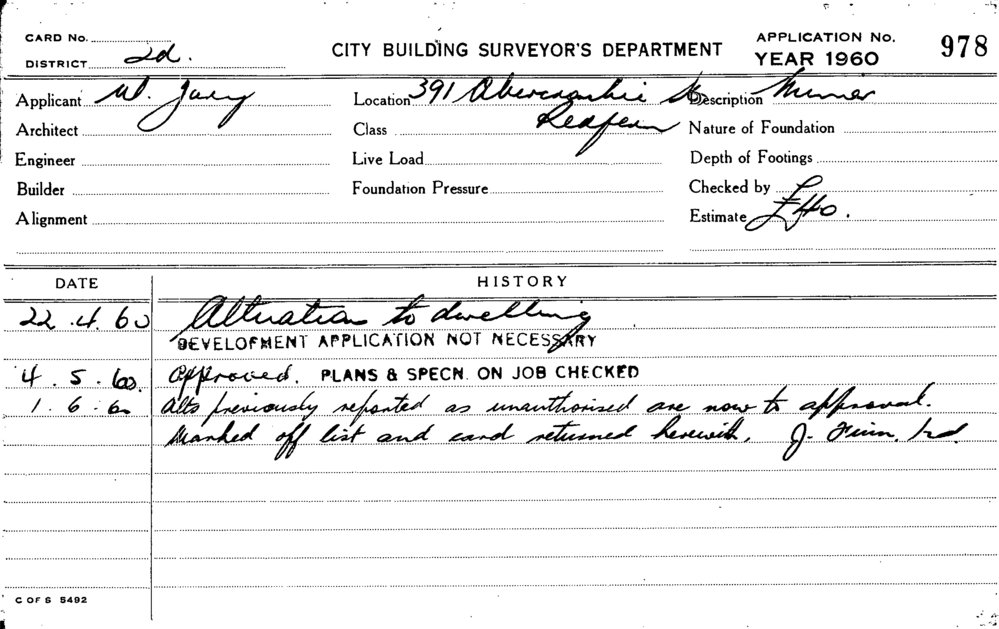 CARD No.
DISTRICT 2d.
CITY BUILDING SURVEYOR'S DEPARTMENT
APPLICATION No. 978
YEAR 1960
Applicant W.
Location 391 Abercrombie St
Redfern
Description Minor
Architect
Class
Nature of Foundation
Engineer
Live Load
Depth of Footings
Builder
Foundation Pressure
Checked by
Alignment
Estimate £40.
DATE HISTORY
22.4.60 Alteration to dwelling
DEVELOPMENT APPLICATION NOT NECESSARY
4.5.60. Approved. PLANS & SPECN. ON JOB CHECKED
1.6.60 Alts previously reported as unauthorised are now to approval.
Marked off list and card returned herewith. J.
C OF S 5492